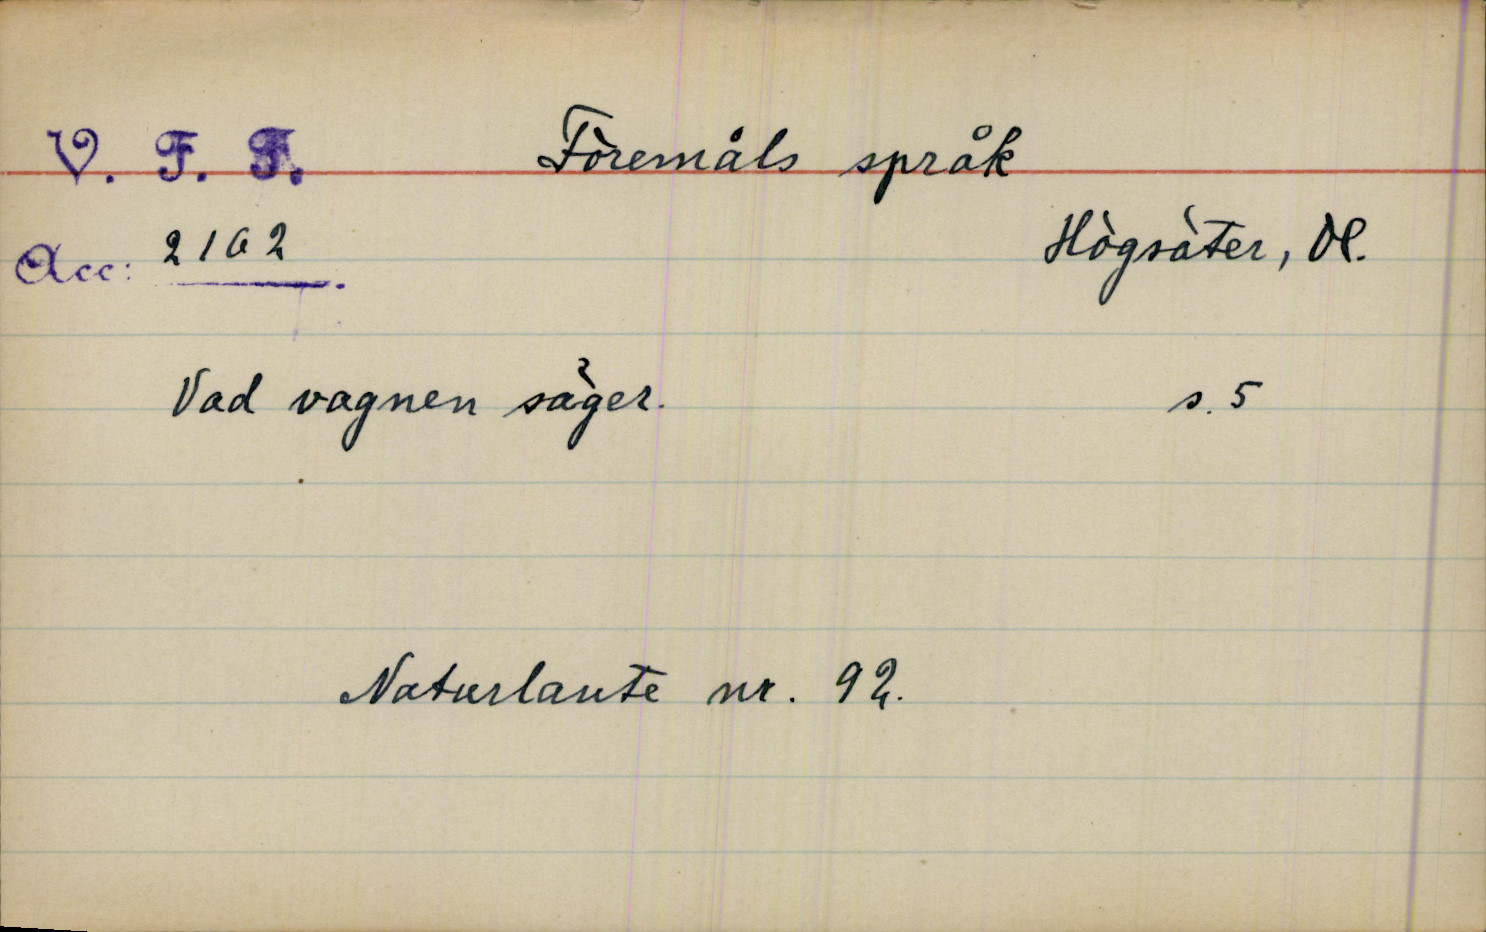 V. F. F. Föremåls språk
Acc: 2162 Högsäter, Dl.
Vad vagnen säger. s. 5
Naturlaute nr. 92.